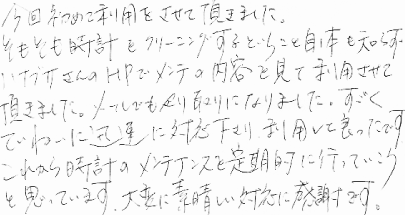 今回初めて利用をさせて頂きました。
そもそも時計をクリーニングするということ自体も知らず
さんのHPでメンテの内容を見て利用させて
頂きました。メールでもやり取りになりました。すごく
ていねいに迅速に対応下さり、利用して良かったです
これから時計のメンテナンスを定期的に行っていこう
と思っています。大変に素晴しい対応に感謝します。